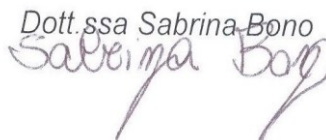 Dott.ssa Sabrina Bono
Sabrina Bono